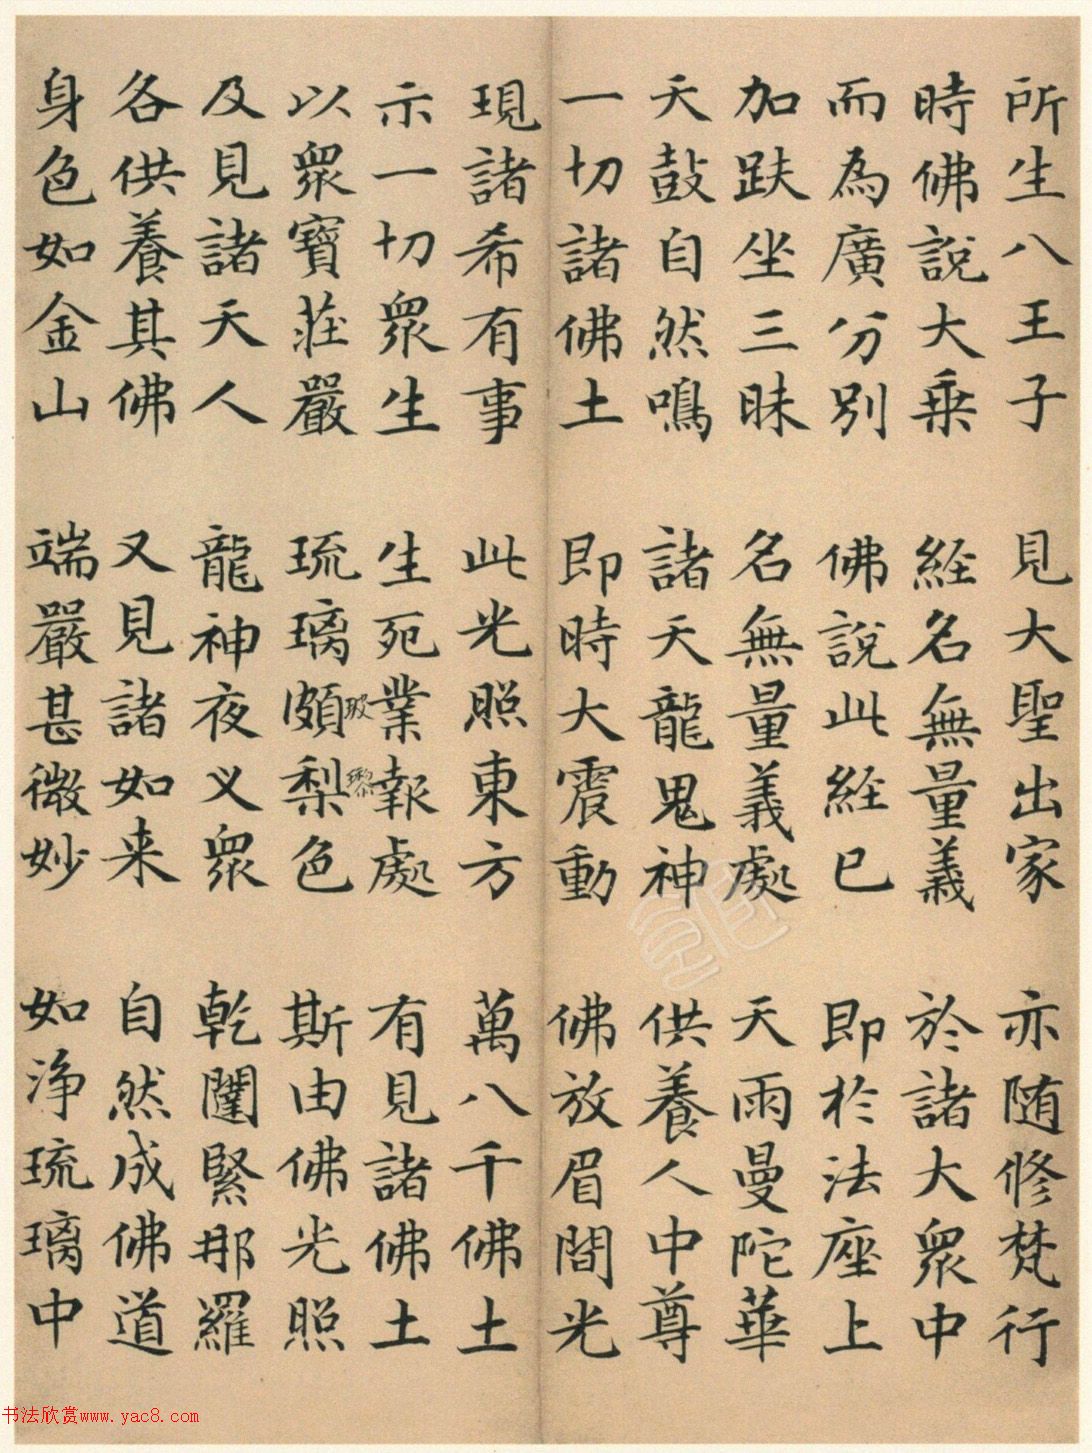 所生八王子 見大聖出家 亦随修梵行
時佛說大乘 經名無量義 於諸大眾中
而為廣分別 佛說此經已 即於法座上
加趺坐三昧 名無量義處 天雨曼陀華
天鼓自然鳴 諸天龍鬼神 供養人中尊
一切諸佛土 即時大震動 佛放眉間光
現諸希有事 此光照東方 萬八千佛土
示一切眾生 生死業報處 有見諸佛土
以眾寶莊嚴 琉璃頗梨色 斯由佛光照
玻 瓈
及見諸天人 龍神夜义眾 乾闥緊那羅
各供養其佛 又見諸如来 自然成佛道
身色如金山 端嚴甚微妙 如淨琉璃中
书法欣赏www.yac8.com